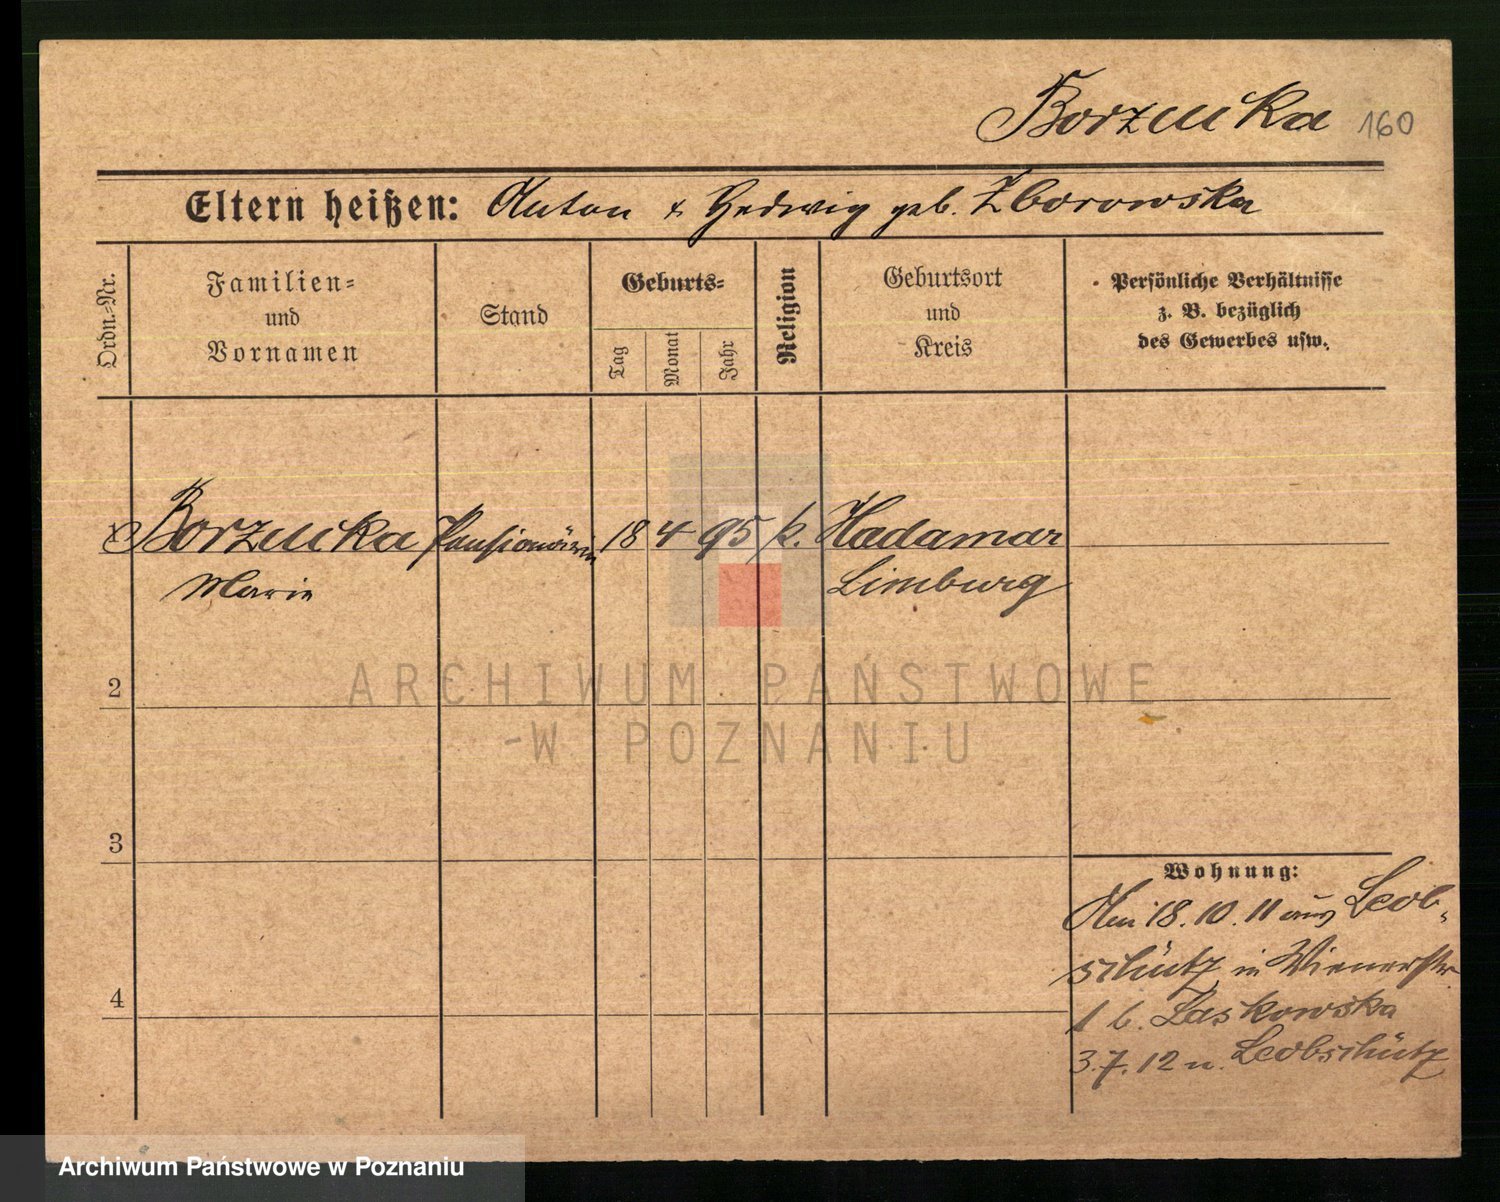 Borzucka 160
Eltern heißen: Anton & Hedwig geb. Zborowska
Ordn.-Nr.
Familien-
und
Vornamen
Stand
Geburts-
Tag
Monat
Jahr
Religion
Geburtsort
und
Kreis
Persönliche Verhältnisse
z. B. bezüglich
des Gewerbes usw.
Borzucka Pensionärin 18 4 95 k. Hadamar
Marie Limburg
2
3
4
Wohnung:
Am 18.10.11 aus Leob-
schütz in Wienerstr.
1 b. Laskowska
3.7.12 n. Leobschütz
ARCHIWUM PAŃSTWOWE
W POZNANIU
Archiwum Państwowe w Poznaniu